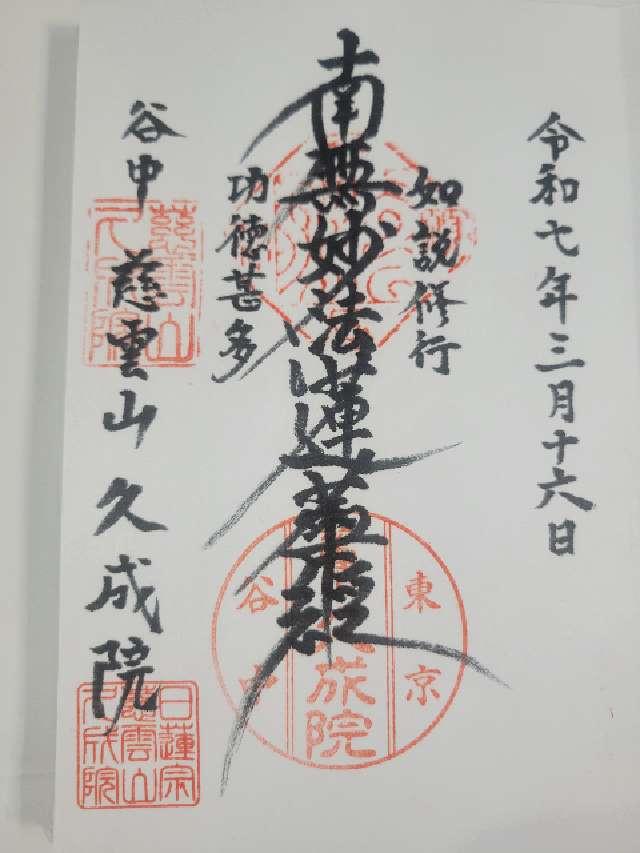 令和七年三月十六日
如説修行
南無妙法蓮華経
功徳甚多
谷中 慈雲山 久成院
慈雲山
久成院
東京
久成院
谷中
日蓮宗
慈雲山
久成院